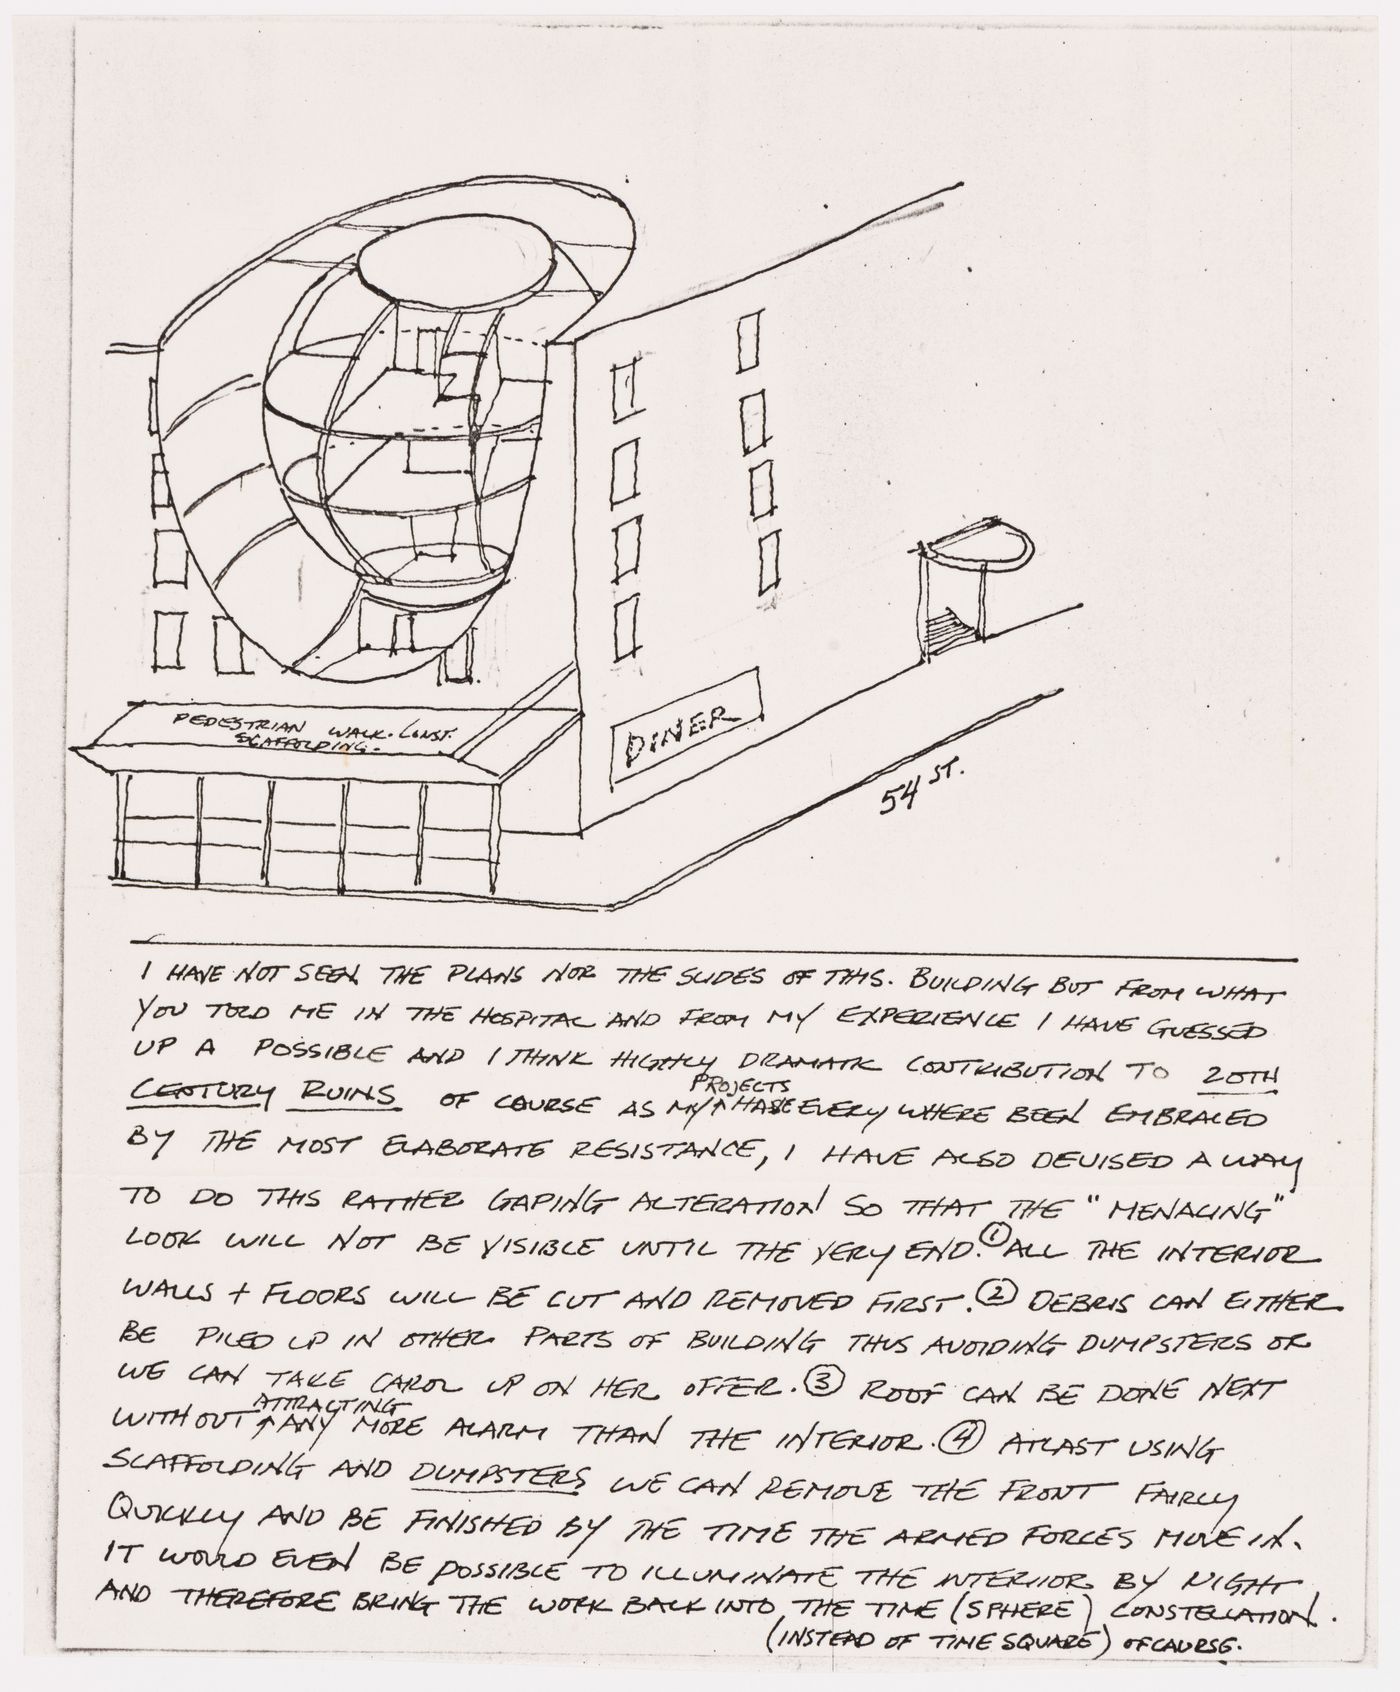 PEDESTRIAN WALK. CONST.
SCAFFOLDING.
DINER
54 ST.
I HAVE NOT SEEN THE PLANS NOR THE SLIDES OF THIS. BUILDING BUT FROM WHAT
YOU TOLD ME IN THE HOSPITAL AND FROM MY EXPERIENCE I HAVE GUESSED
UP A POSSIBLE AND I THINK HIGHLY DRAMATIC CONTRIBUTION TO 20TH
CENTURY RUINS OF COURSE AS MY PROJECTS HAVE EVERY WHERE BEEN EMBRACED
BY THE MOST ELABORATE RESISTANCE, I HAVE ALSO DEVISED A WAY
TO DO THIS RATHER GAPING ALTERATION SO THAT THE "MENACING"
LOOK WILL NOT BE VISIBLE UNTIL THE VERY END. ① ALL THE INTERIOR
WALLS + FLOORS WILL BE CUT AND REMOVED FIRST. ② DEBRIS CAN EITHER
BE PILED UP IN OTHER PARTS OF BUILDING THUS AVOIDING DUMPSTERS OR
WE CAN TAKE CAROL UP ON HER OFFER. ③ ROOF CAN BE DONE NEXT
WITHOUT ATTRACTING ANY MORE ALARM THAN THE INTERIOR. ④ ATLAST USING
SCAFFOLDING AND DUMPSTERS WE CAN REMOVE THE FRONT FAIRLY
QUICKLY AND BE FINISHED BY THE TIME THE ARMED FORCES MOVE IN.
IT WOULD EVEN BE POSSIBLE TO ILLUMINATE THE INTERIOR BY NIGHT
AND THEREFORE BRING THE WORK BACK INTO THE TIME (SPHERE) CONSTELLATION.
(INSTEAD OF TIME SQUARE) OF COURSE.